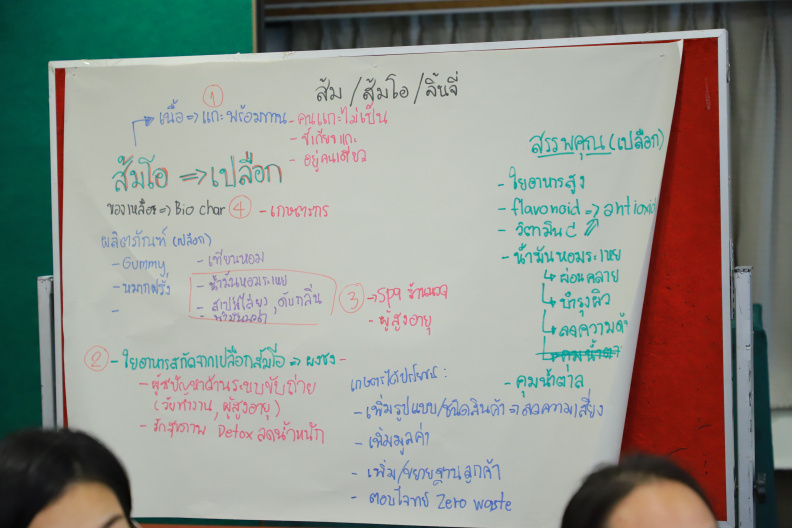 ส้ม / ส้มโอ / ลิ้นจี่
① เนื้อ => แกะ พร้อมทาน - คนแกะไม่เป็น
- ขี้เกียจแกะ
- อยู่คนเดียว
ส้มโอ => เปลือก
ของเหลือง => Bio char ④ - เกษตรกร
ผลิตภัณฑ์ (เปลือก)
- Gummy
- หมากฝรั่ง
-
- เทียนหอม
- น้ำมันหอมระเหย
- สเปรย์ไล่ยุง, ดับกลิ่น
- น้ำมันนวด
③ -> Spa ร้านนวด
- ผู้สูงอายุ
② - ใยอาหารสกัดจากเปลือกส้มโอ => ผงชง -
- ผู้มีปัญหาด้านระบบขับถ่าย
(วัยทำงาน, ผู้สูงอายุ)
- รักสุขภาพ Detox ลดน้ำหนัก
สรรพคุณ (เปลือก)
- ใยอาหารสูง
- flavonoid => antioxid
- วิตามิน C
- น้ำมันหอมระเหย
ผ่อนคลาย
บำรุงผิว
ลดความดั
คุมน้ำตา
- คุมน้ำตาล
เกษตรได้ประโยชน์ :
- เพิ่มรูปแบบ/ชนิดสินค้า => ลดความเสี่ยง
- เพิ่มมูลค่า
- เพิ่ม/ขยายฐานลูกค้า
- ตอบโจทย์ Zero waste